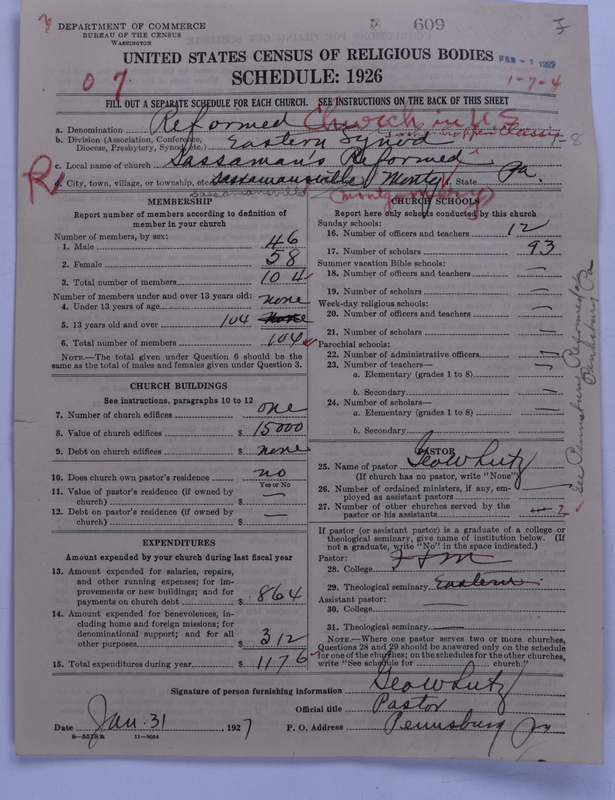 609
DEPARTMENT OF COMMERCE
BUREAU OF THE CENSUS
WASHINGTON
UNITED STATES CENSUS OF RELIGIOUS BODIES
FEB -1 1927
SCHEDULE: 1926
1-7-4
07
FILL OUT A SEPARATE SCHEDULE FOR EACH CHURCH. SEE INSTRUCTIONS ON THE BACK OF THIS SHEET
a. Denomination Reformed Church in U S
b. Division (Association, Conference, Diocese, Presbytery, Synod, etc.) Eastern Synod
c. Local name of church Sassaman's Reformed
d. City, town, village, or township, etc. Sassamansville Montg. State Pa.
Sassamansville (Montgomery)
R
MEMBERSHIP
Report number of members according to definition of member in your church
Number of members, by sex:
1. Male 46
2. Female 58
3. Total number of members 104
Number of members under and over 13 years old:
4. Under 13 years of age none
5. 13 years old and over 104 none
6. Total number of members 104
NOTE.—The total given under Question 6 should be the same as the total of males and females given under Question 3.
CHURCH BUILDINGS
See instructions, paragraphs 10 to 12
7. Number of church edifices one
8. Value of church edifices $ 15000
9. Debt on church edifices $ none
10. Does church own pastor's residence no
Yes or No
11. Value of pastor's residence (if owned by church) $ —
12. Debt on pastor's residence (if owned by church) $ —
EXPENDITURES
Amount expended by your church during last fiscal year
13. Amount expended for salaries, repairs, and other running expenses; for improvements or new buildings; and for payments on church debt $ 864
14. Amount expended for benevolences, including home and foreign missions; for denominational support; and for all other purposes $ 312
15. Total expenditures during year $ 1176
CHURCH SCHOOLS
Report here only schools conducted by this church
Sunday schools:
16. Number of officers and teachers 12
17. Number of scholars 93
Summer vacation Bible schools:
18. Number of officers and teachers —
19. Number of scholars —
Week-day religious schools:
20. Number of officers and teachers —
21. Number of scholars —
Parochial schools:
22. Number of administrative officers —
23. Number of teachers—
a. Elementary (grades 1 to 8) —
b. Secondary —
24. Number of scholars—
a. Elementary (grades 1 to 8) —
b. Secondary
PASTOR
25. Name of pastor Geo W Lutz
(If church has no pastor, write "None")
26. Number of ordained ministers, if any, employed as assistant pastors —
27. Number of other churches served by the pastor or his assistants 2
See Pennsburg Reformed Pennsburg
If pastor (or assistant pastor) is a graduate of a college or theological seminary, give name of institution below. (If not a graduate, write "No" in the space indicated.)
Pastor:
28. College F & M
29. Theological seminary Eastern
Assistant pastor:
30. College —
31. Theological seminary —
NOTE.—Where one pastor serves two or more churches, Questions 28 and 29 should be answered only on the schedule for one of the churches; on the schedules for the other churches, write "See schedule for church."
Signature of person furnishing information Geo W Lutz
Official title Pastor
Date Jan. 31, 1927 P. O. Address Pennsburg Pa
8—5518a 11—9054